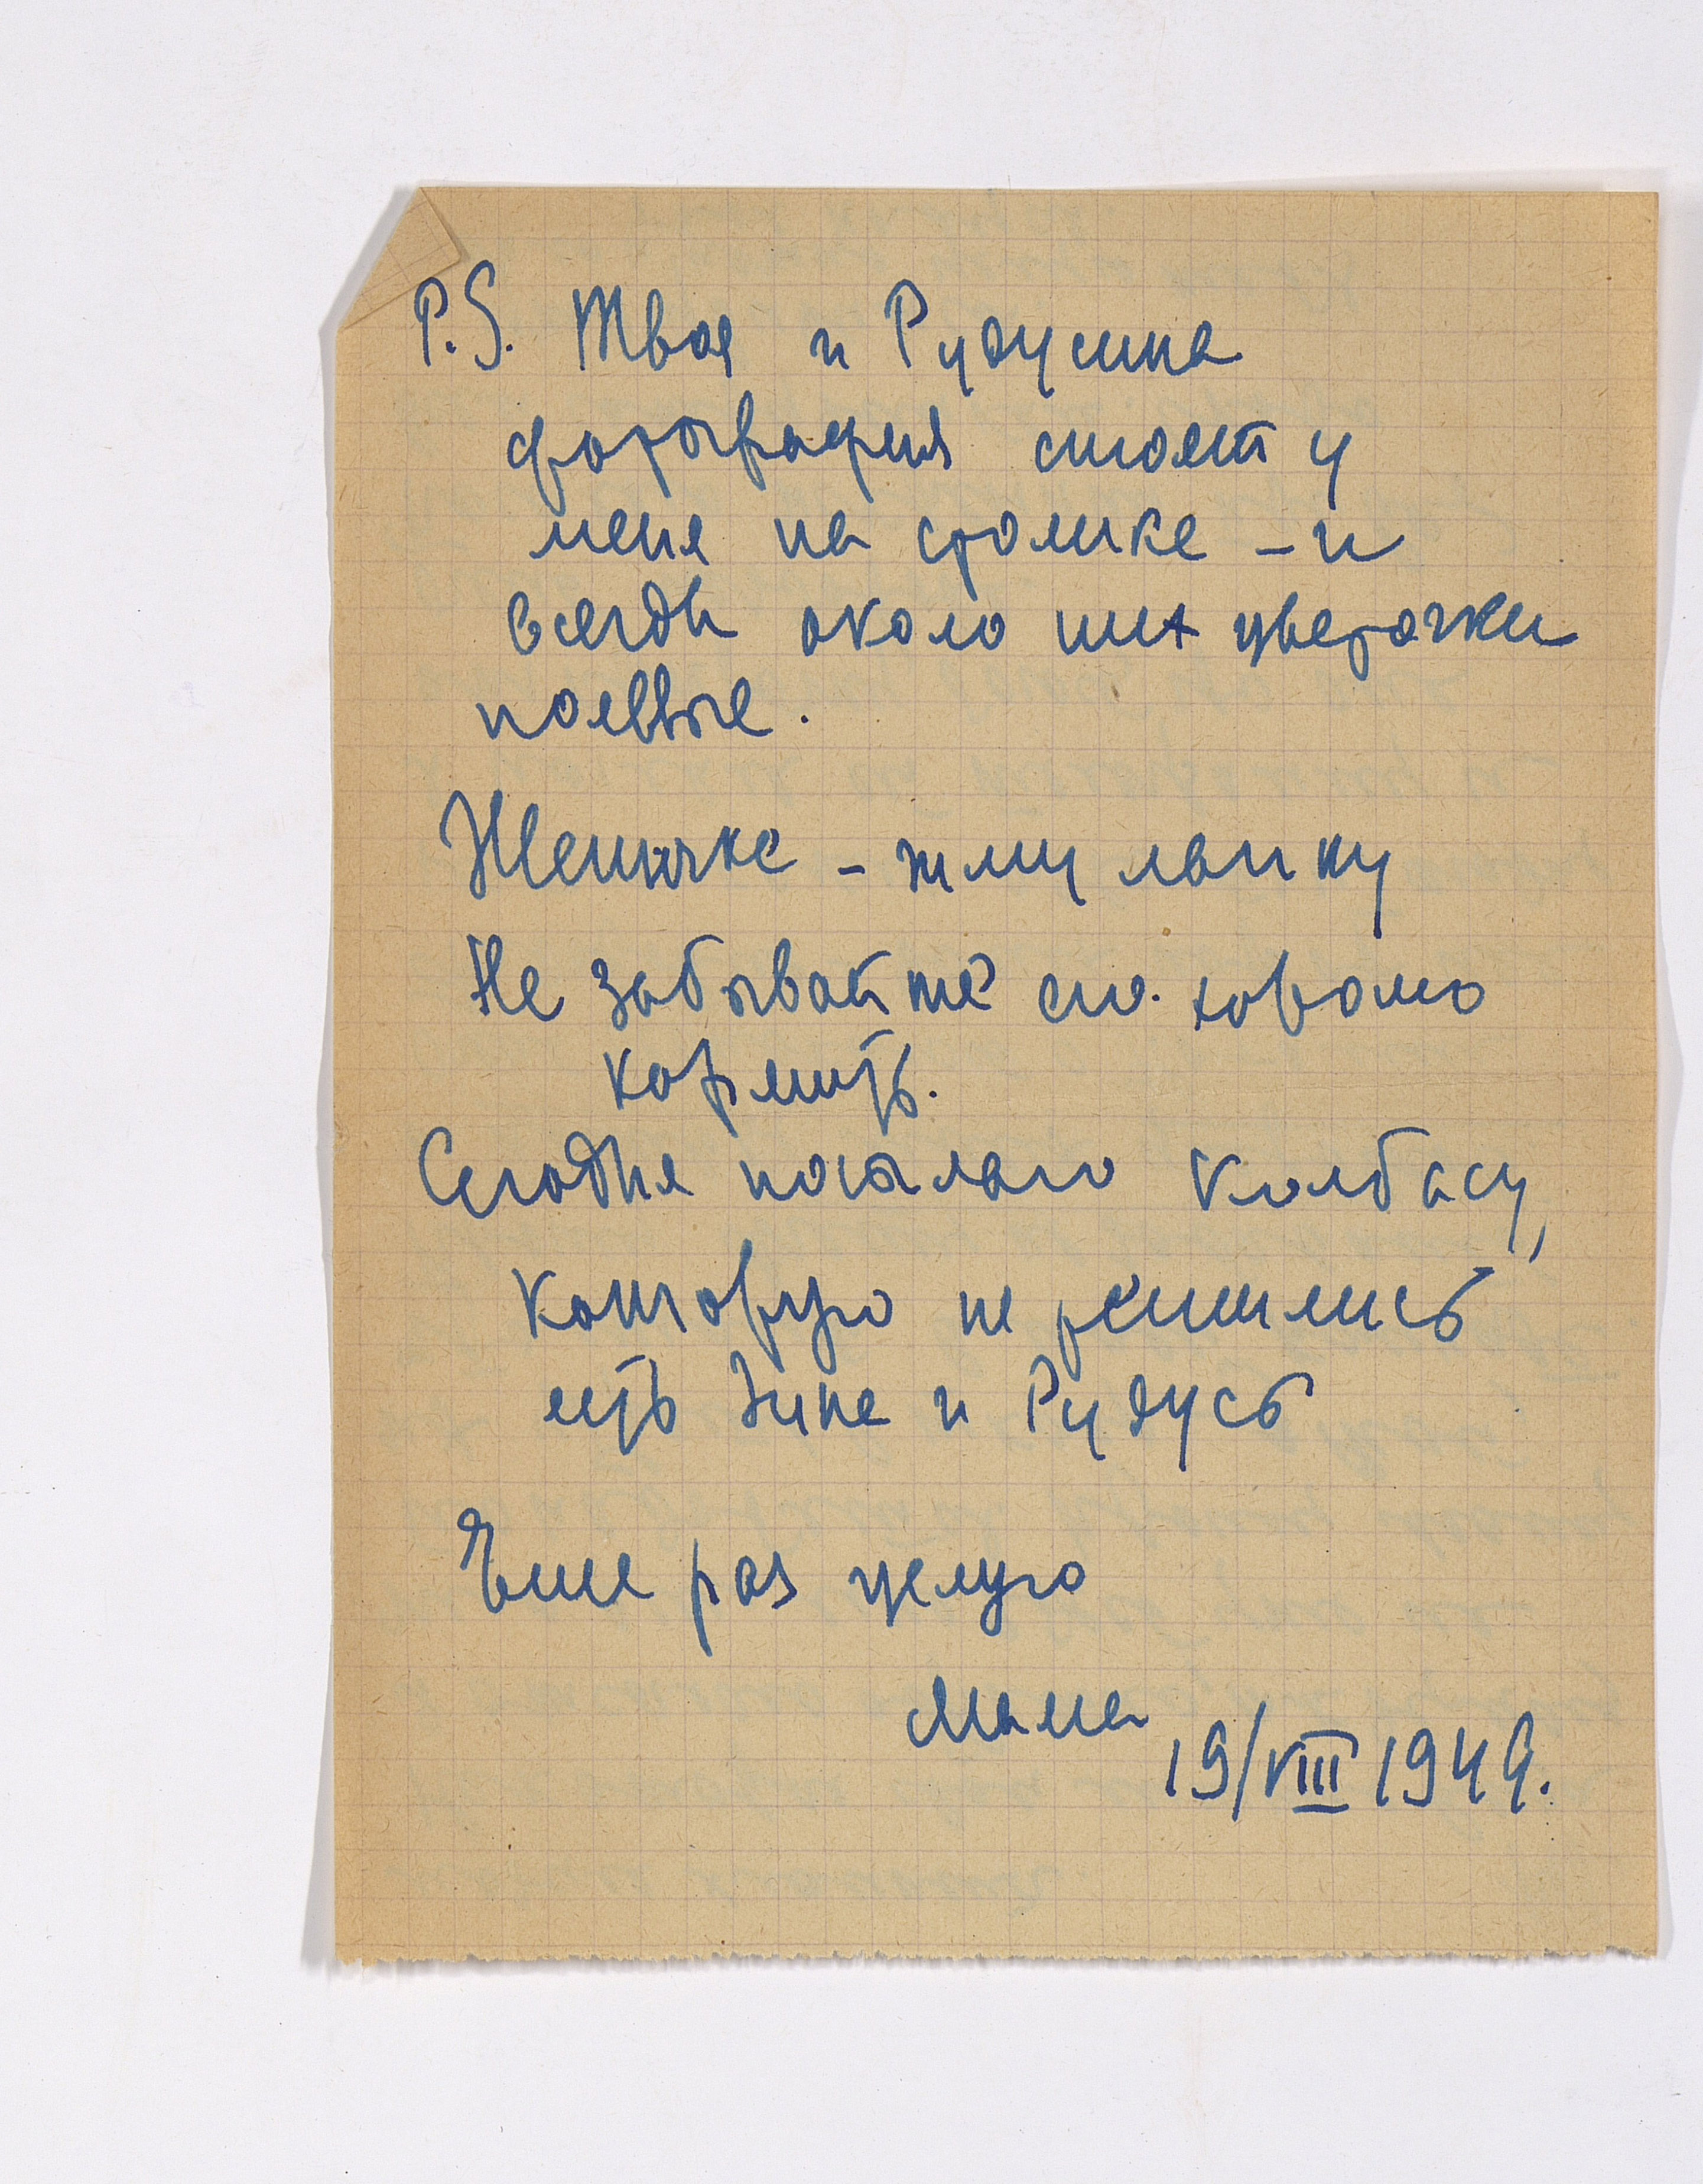 P.S. Твоя и Рудусина
фотография стоят у
меня на столике – и
всегда около них цветочки
полевые.
Женичке – жму лапку
Не забывайте его хорошо
кормить.
Сегодня посылаю колбасу,
которую не решились
есть Зина и Рудусь
Еще раз целую
Мама
19/VIII 1949.